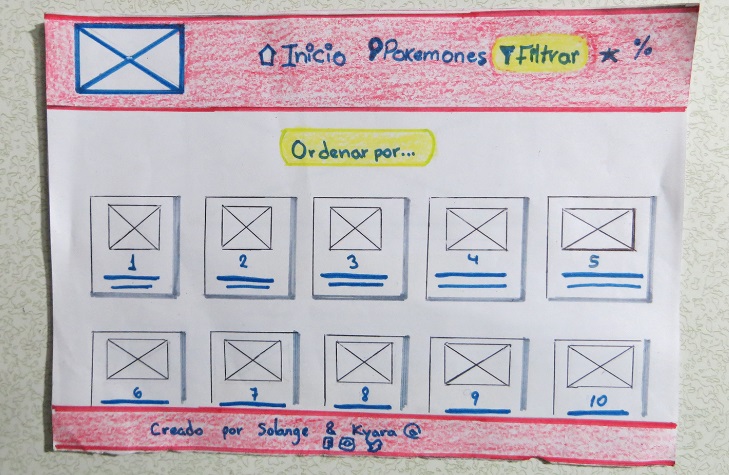 Inicio Pokemones Filtrar %
Ordenar por...
1 2 3 4 5
6 7 8 9 10
Creado por Solange & Kyara @